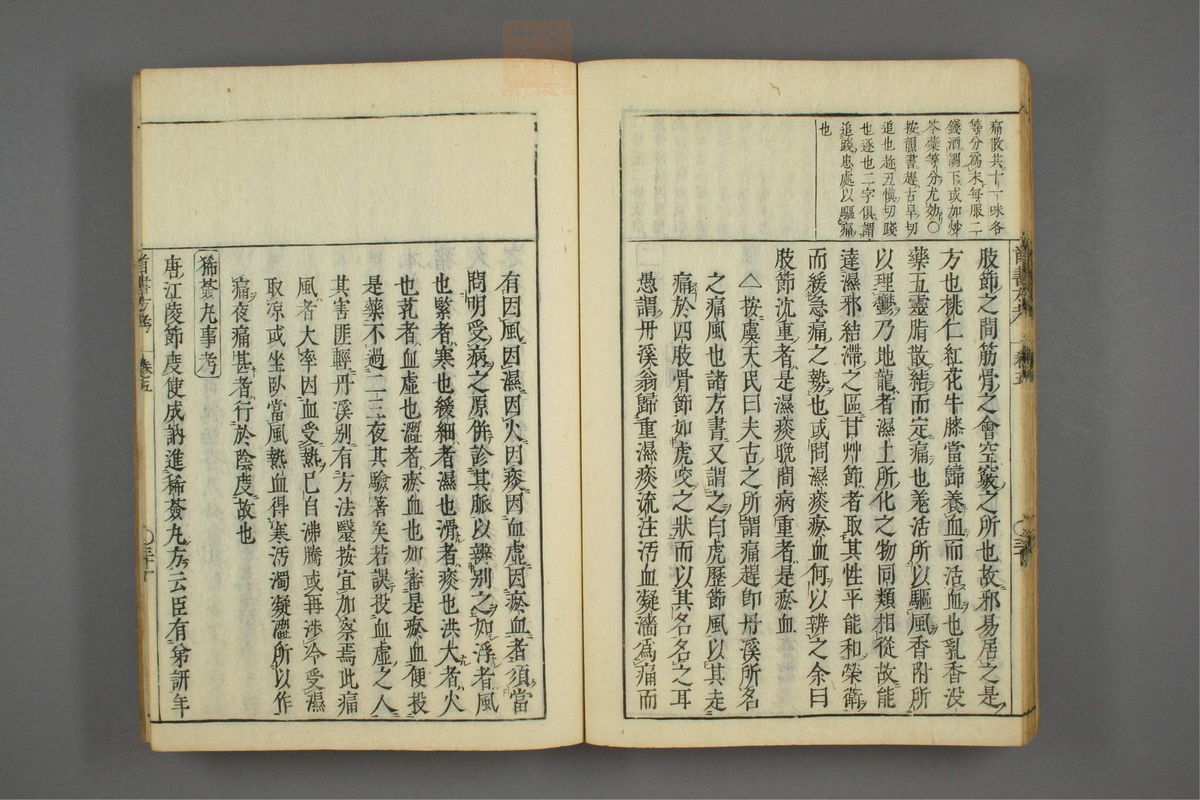 痛散共十一味各
等分爲末每服二
錢酒調下或加炒
芩藥等分尤効〇
按韻書趕古旱切
追也趂丑愼切踐
也逐也二字俱謂
追踐患處以驅痛
也
肢節之間筋骨之會空竅之所也故邪易居之是
方也桃仁紅花牛膝當歸養血而活血也乳香没
藥五靈脂散結而定痛也羌活所以驅風香附所
以理鬱乃地龍者濕土所化之物同類相從故能
達濕邪結滯之區甘艸節者取其性平能和榮衛
而緩急痛之勢也或問濕痰瘀血何以辨之余曰
肢節沈重者是濕痰晚間病重者是瘀血
△按虞天民曰夫古之所謂痛趕卽丹溪所名
之痛風也諸方書又謂之白虎歷節風以其走
痛於四肢骨節如虎咬之狀而以其名名之耳
愚謂丹溪翁歸重濕痰流注汚血凝濇爲痛而
有因風因濕因火因痰因血虛因瘀血者須當
問明受病之原併診其脈以辨別之如浮者風
也緊者寒也緩細者濕也滑者痰也洪大者火
也芤者血虛也澀者瘀血也如審是瘀血便投
是藥不過二三夜其驗著矣若誤投血虛之人
其害匪輕丹溪別有方法毉按宜加察焉此痛
風者大率因血受熱已自沸騰或再涉冷受濕
取涼或坐臥當風熱血得寒汚濁凝澀所以作
痛夜痛甚者行於陰度故也
豨薟丸事考
唐江陵節度使成訥進豨薟丸方云臣有弟訮年
首書方考
卷五